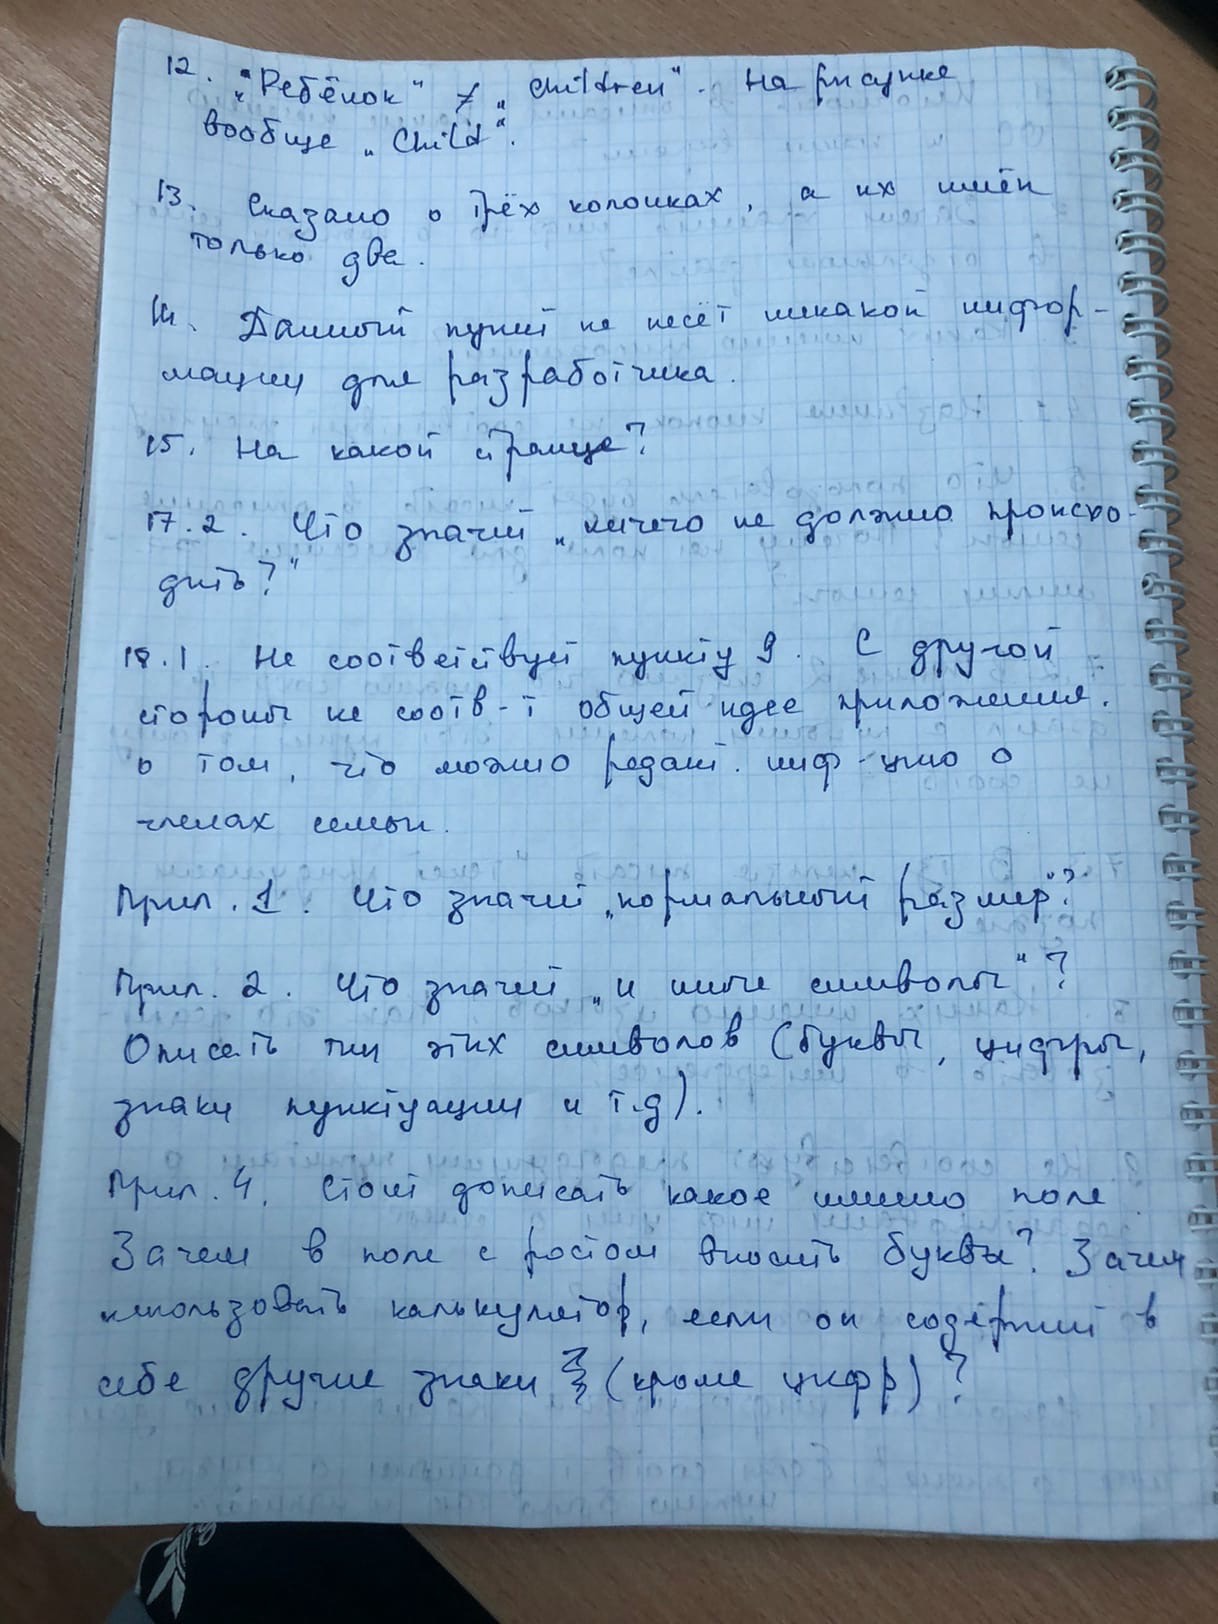 12. „Ребёнок" ≠ „Children". На рисунке
вообще „Child".
13. Сказано о трёх колонках, а их имён
только две.
14. Данный пункт не несёт никакой инфор-
мации для разработчика.
15. На какой странце?
17.2. Что значит „ничего не должно происхо-
дить?"
18.1. Не соответствует пункту 9. С другой
стороны не соотв-т общей идее приложения.
о том, что можно редакт. инф-цию о
членах семьи.
Прил. 1. Что значит „нормальный размер"?
Прил. 2. Что значит „и иные символы"?
Описать тип этих символов (буквы, цифры,
знаки пунктуации и т.д).
Прил. 4. Стоит дописать какое именно поле.
Зачем в поле с ростом вносить буквы? Зачем
использовать калькулятор, если он содержит в
себе другие знаки (кроме цифр)?